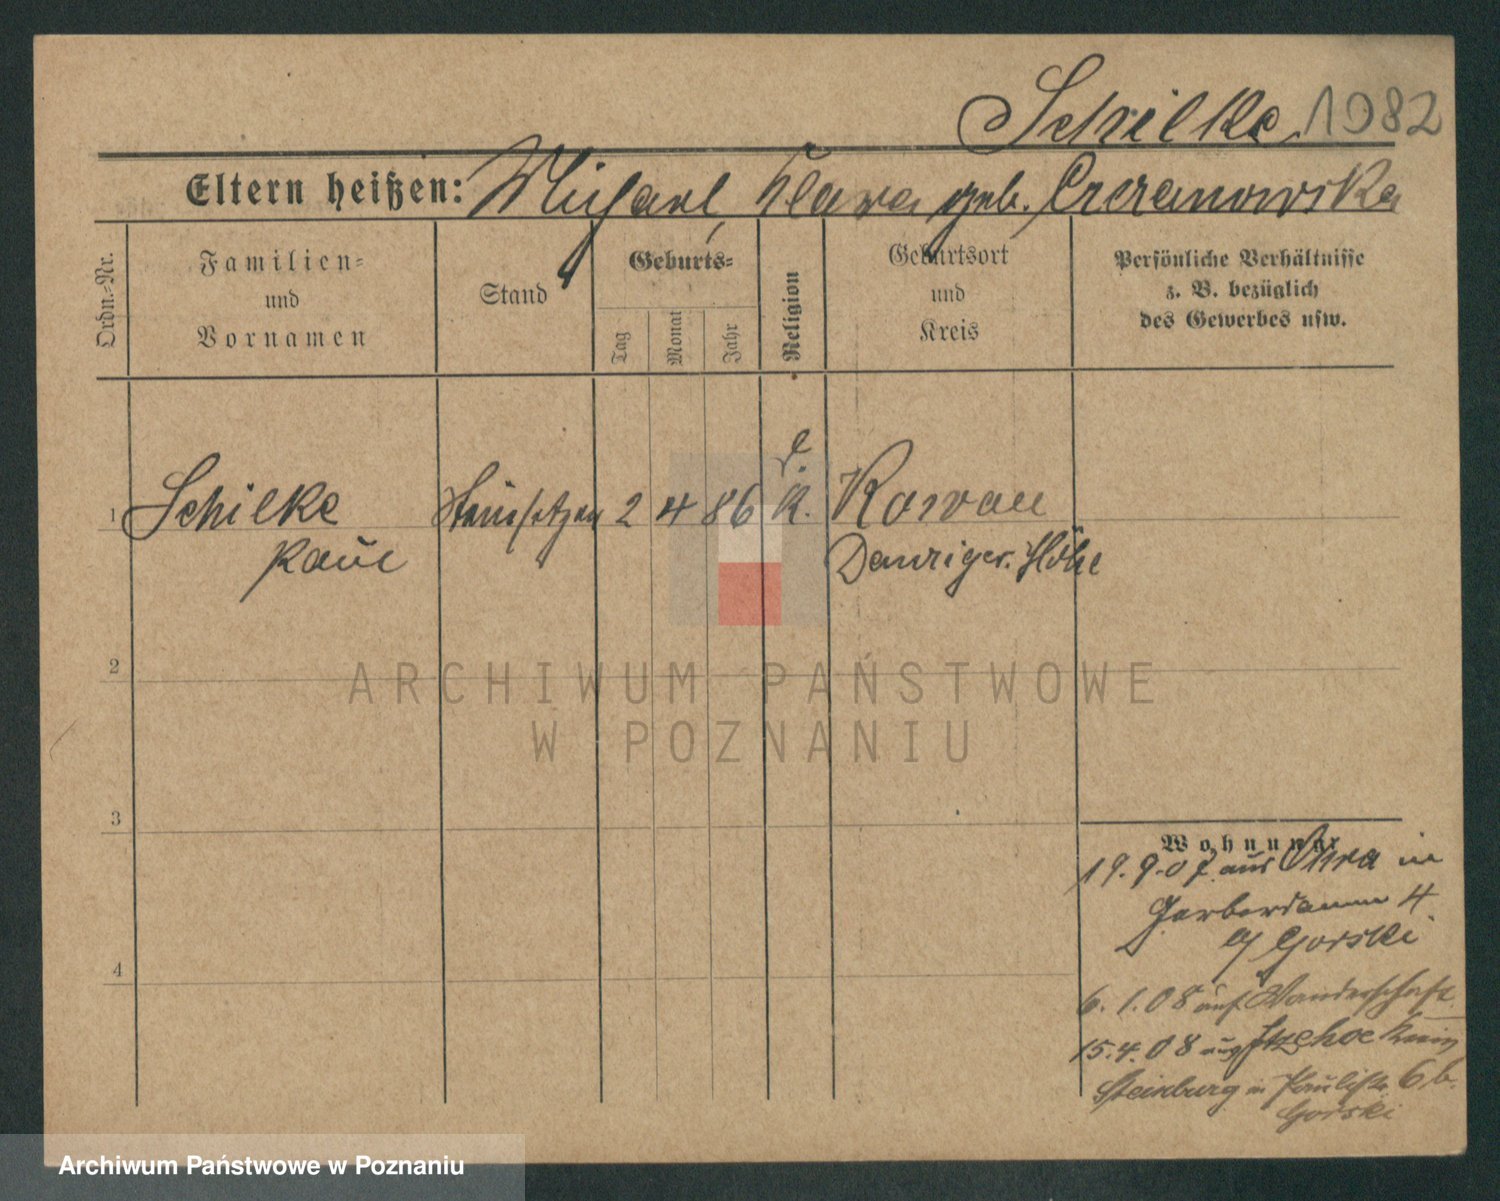 Schilke 1982
Eltern heißen: Michael, Klara geb. Czeranowska
Ordn.-Nr.
Familien-
und
Vornamen
Stand
Geburts-
Tag
Monat
Jahr
Religion
Geburtsort
und
Kreis
Persönliche Verhältnisse
z. B. bezüglich
des Gewerbes usw.
1 Schilke Steinsetzer 2 4 86 K. Kowall
Paul Danziger. Höhe
2
ARCHIWUM PAŃSTWOWE
W POZNANIU
3
Wohnung
19.9.07 aus Ohra in
Gerberdamm 4
b/ Gorski
4
6.1.08 auf Wanderschaft
15.4.08 aus Itzehoe Kreis
Steinburg in Paulistr. 6 b.
Gorski
Archiwum Państwowe w Poznaniu